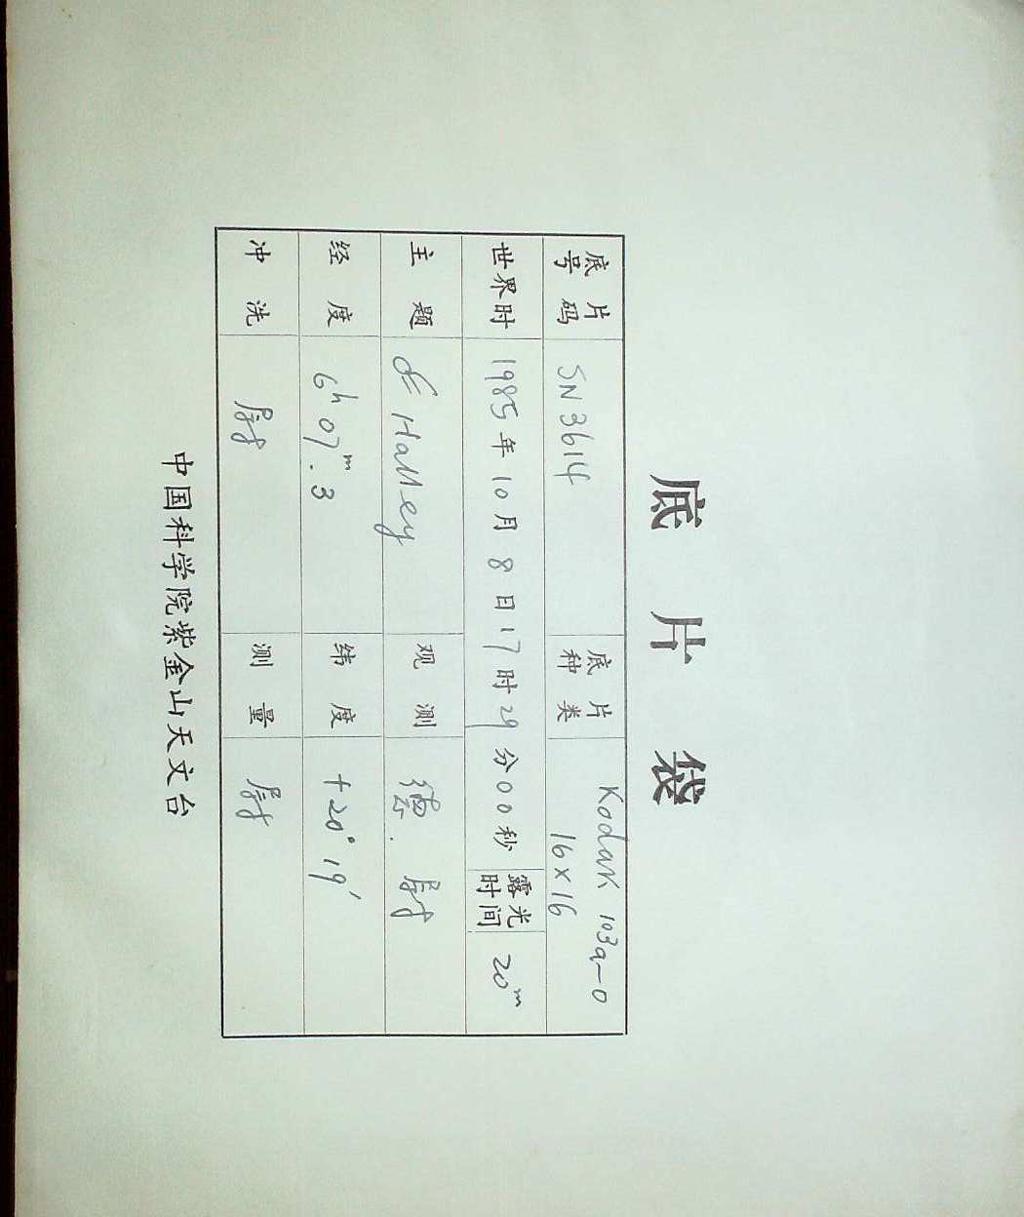 底片袋
底片号码 SN3614 底片种类 Kodak 103a-O 16×16
世界时 1985年10月8日17时29分00秒 露光时间 20m
主题 Halley 观测
经度 6h07m.3 纬度 +20°19′
冲洗 测量
中国科学院紫金山天文台